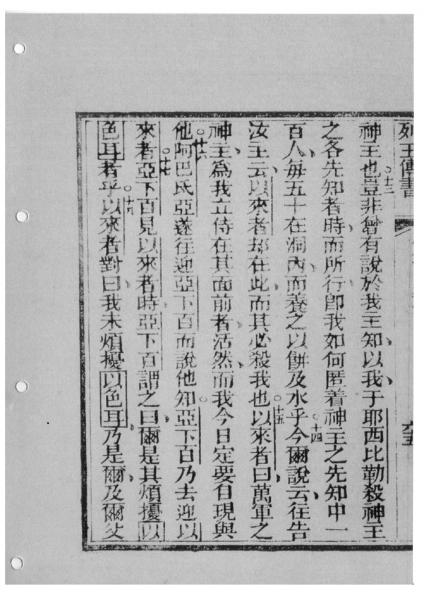 列王傳書
神主也十三豈非曾有說於我主知以我于耶西比勒殺神主
之各先知者時而所行即我如何匿着神主之先知中一
百人每五十在洞內而養之以餅及水乎十四今爾說云往告
汝主云以來者却在此而其必殺我也十五以來者曰萬軍之
神主為我立侍在其面前者活然而我今日定要自現與
他十六阿巴氐亞遂往迎亞下百而說他知亞下百乃去迎以
來者十七亞下百見以來者時亞下百謂之曰爾是其煩擾以
色耳者乎十八以來者對曰我未煩擾以色耳乃是爾及爾父